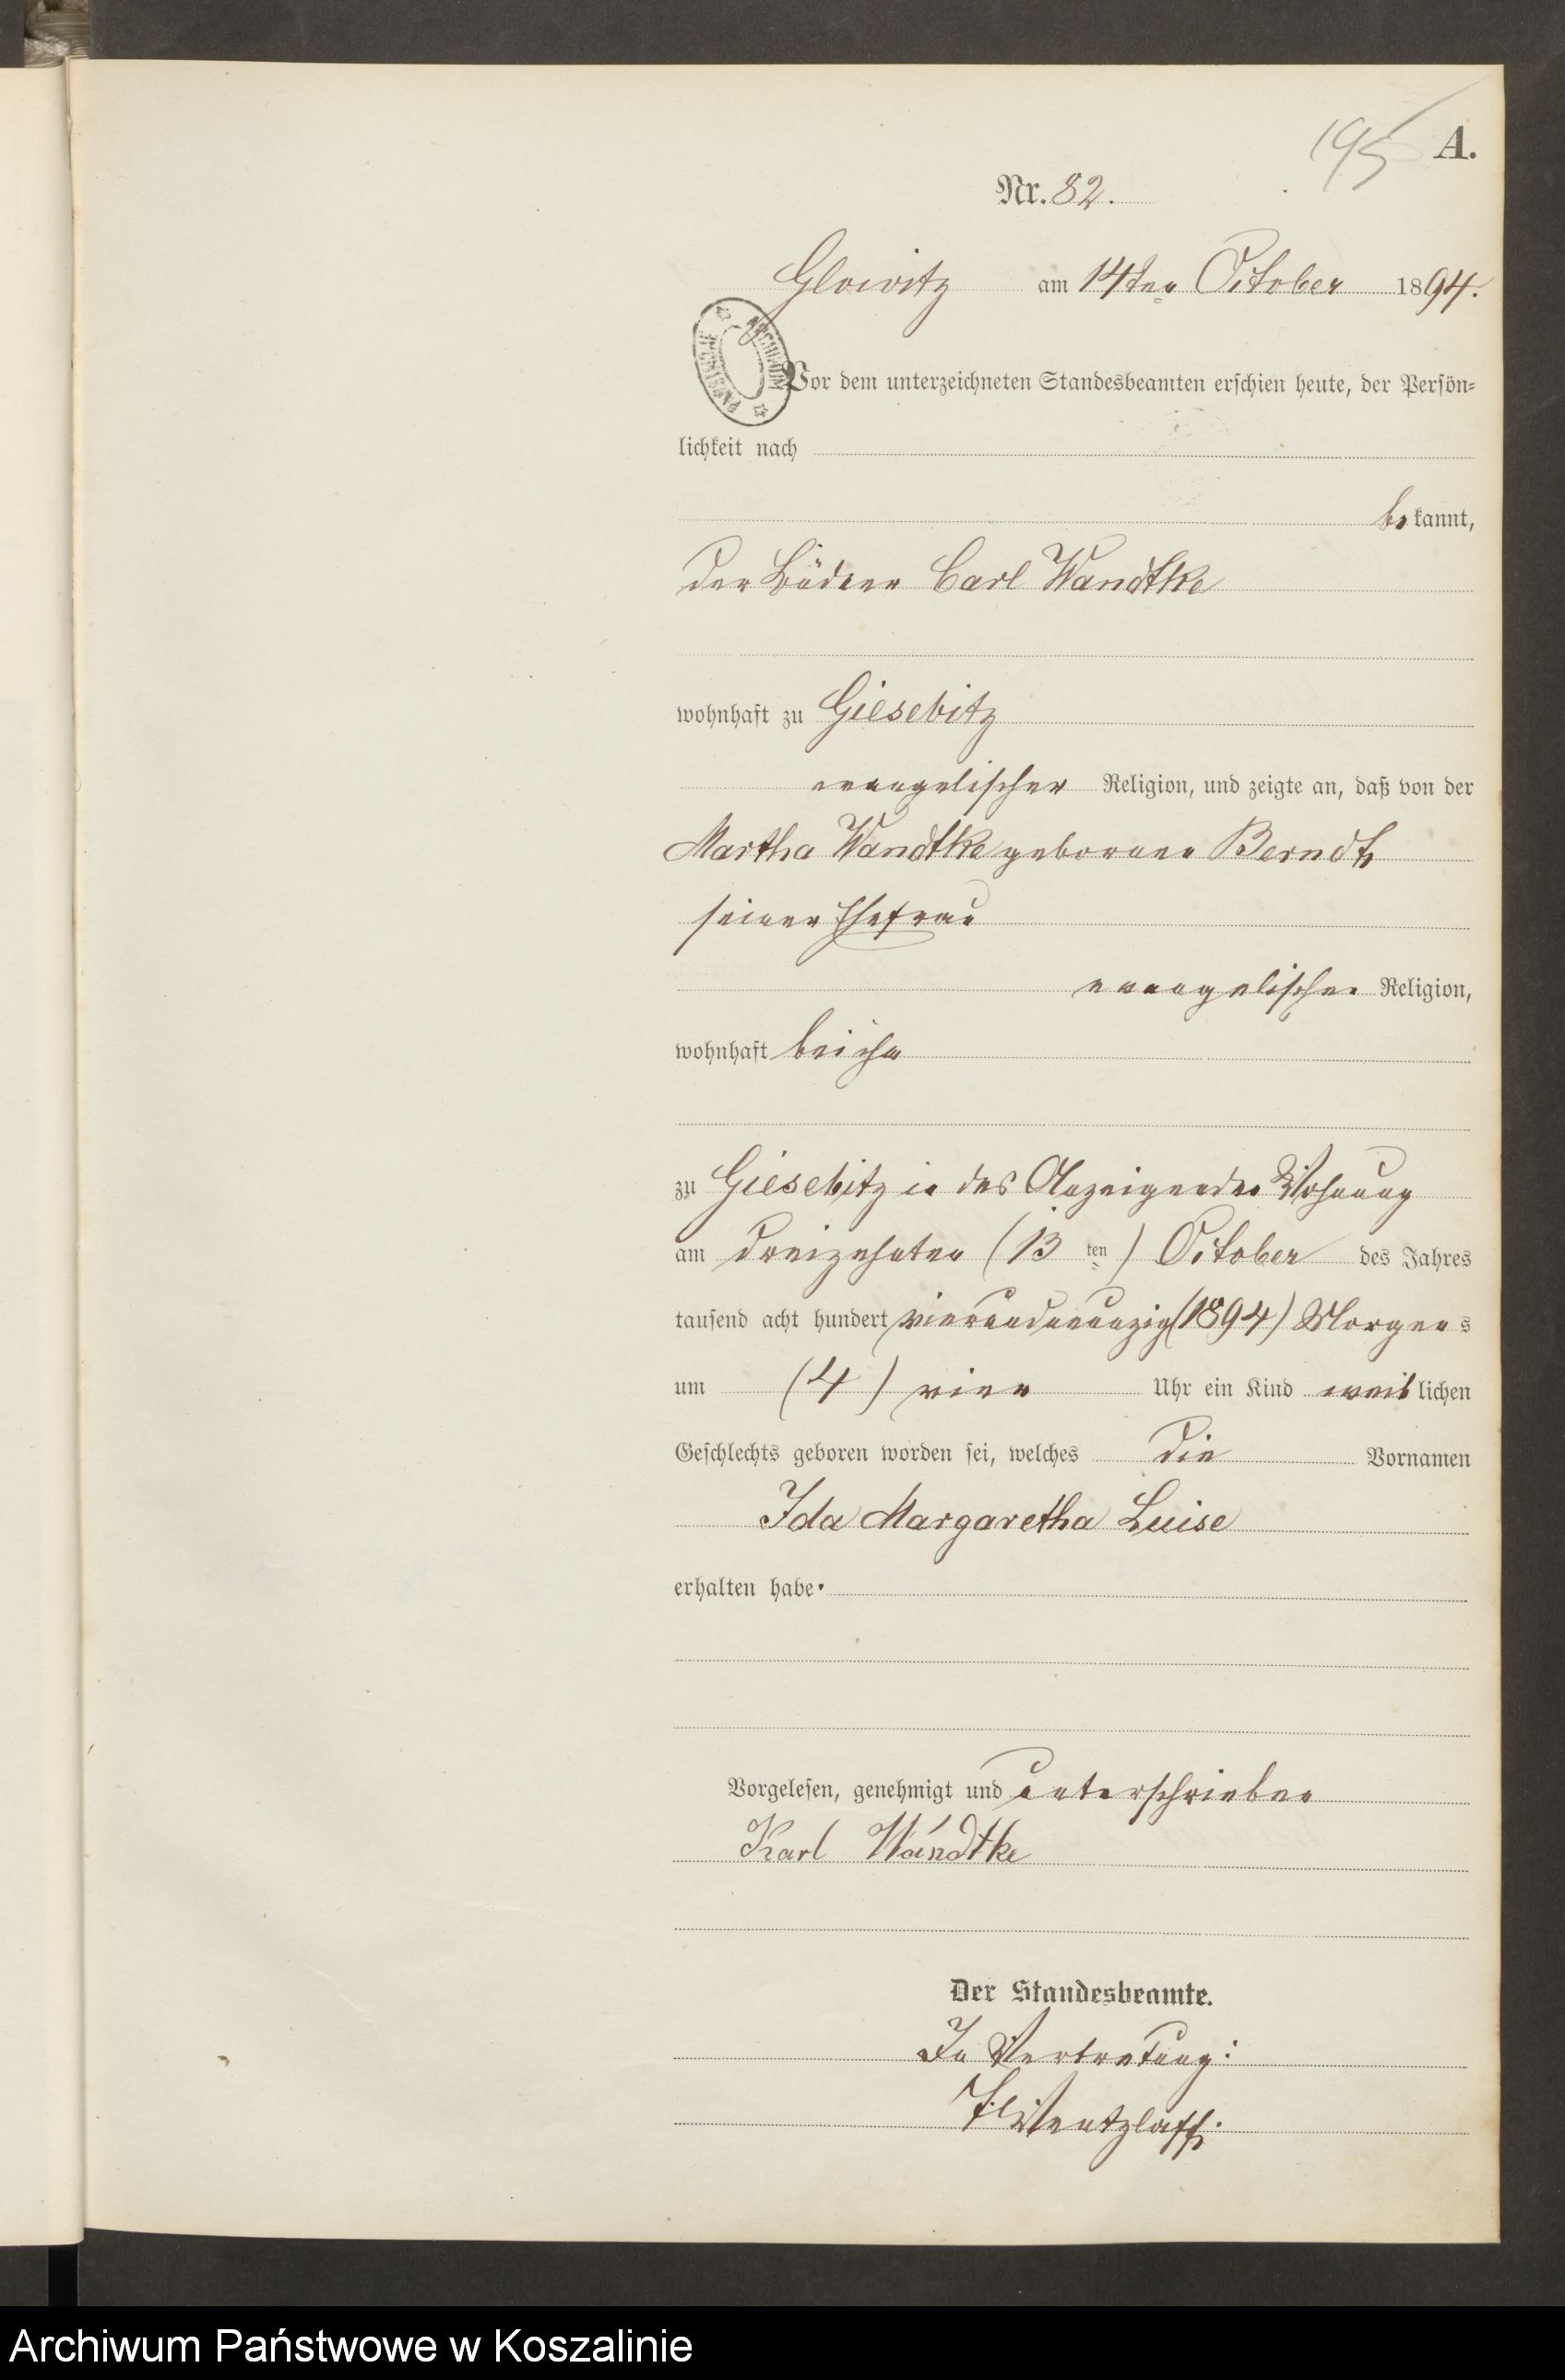 195 A.
Nr. 82.
Glowitz am 14ten October 1894.
ARCHIWUM PAŃSTWOWE
Vor dem unterzeichneten Standesbeamten erschien heute, der Persön-
lichkeit nach
bekannt,
der Büdner Carl Wandtke
wohnhaft zu Giesebitz
evangelischer Religion, und zeigte an, daß von der
Martha Wandtke geborenen Berndt,
seiner Ehefrau
evangelischer Religion,
wohnhaft bei ihm
zu Giesebitz in des Anzeigenden Wohnung
am dreizehnten (13 ten) October des Jahres
tausend acht hundert vierundneunzig (1894) Morgens
um (4) vier Uhr ein Kind weiblichen
Geschlechts geboren worden sei, welches die Vornamen
Ida Margaretha Luise
erhalten habe.
Vorgelesen, genehmigt und unterschrieben
Karl Wandtke
Der Standesbeamte.
In Vertretung:
Wentzlaff.
Archiwum Państwowe w Koszalinie